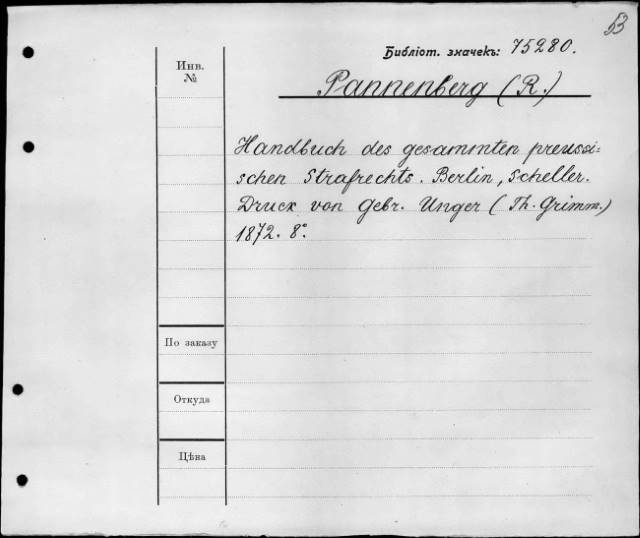 53
Библіот. значекъ: 75280.
Инв.
№
Pannenberg (R.)
Handbuch des gesammten preussi=
schen Strafrechts. Berlin, Scheller.
Druck von Gebr. Unger (Th. Grimm.)
1872. 8°.
По заказу
Откуда
Цѣна